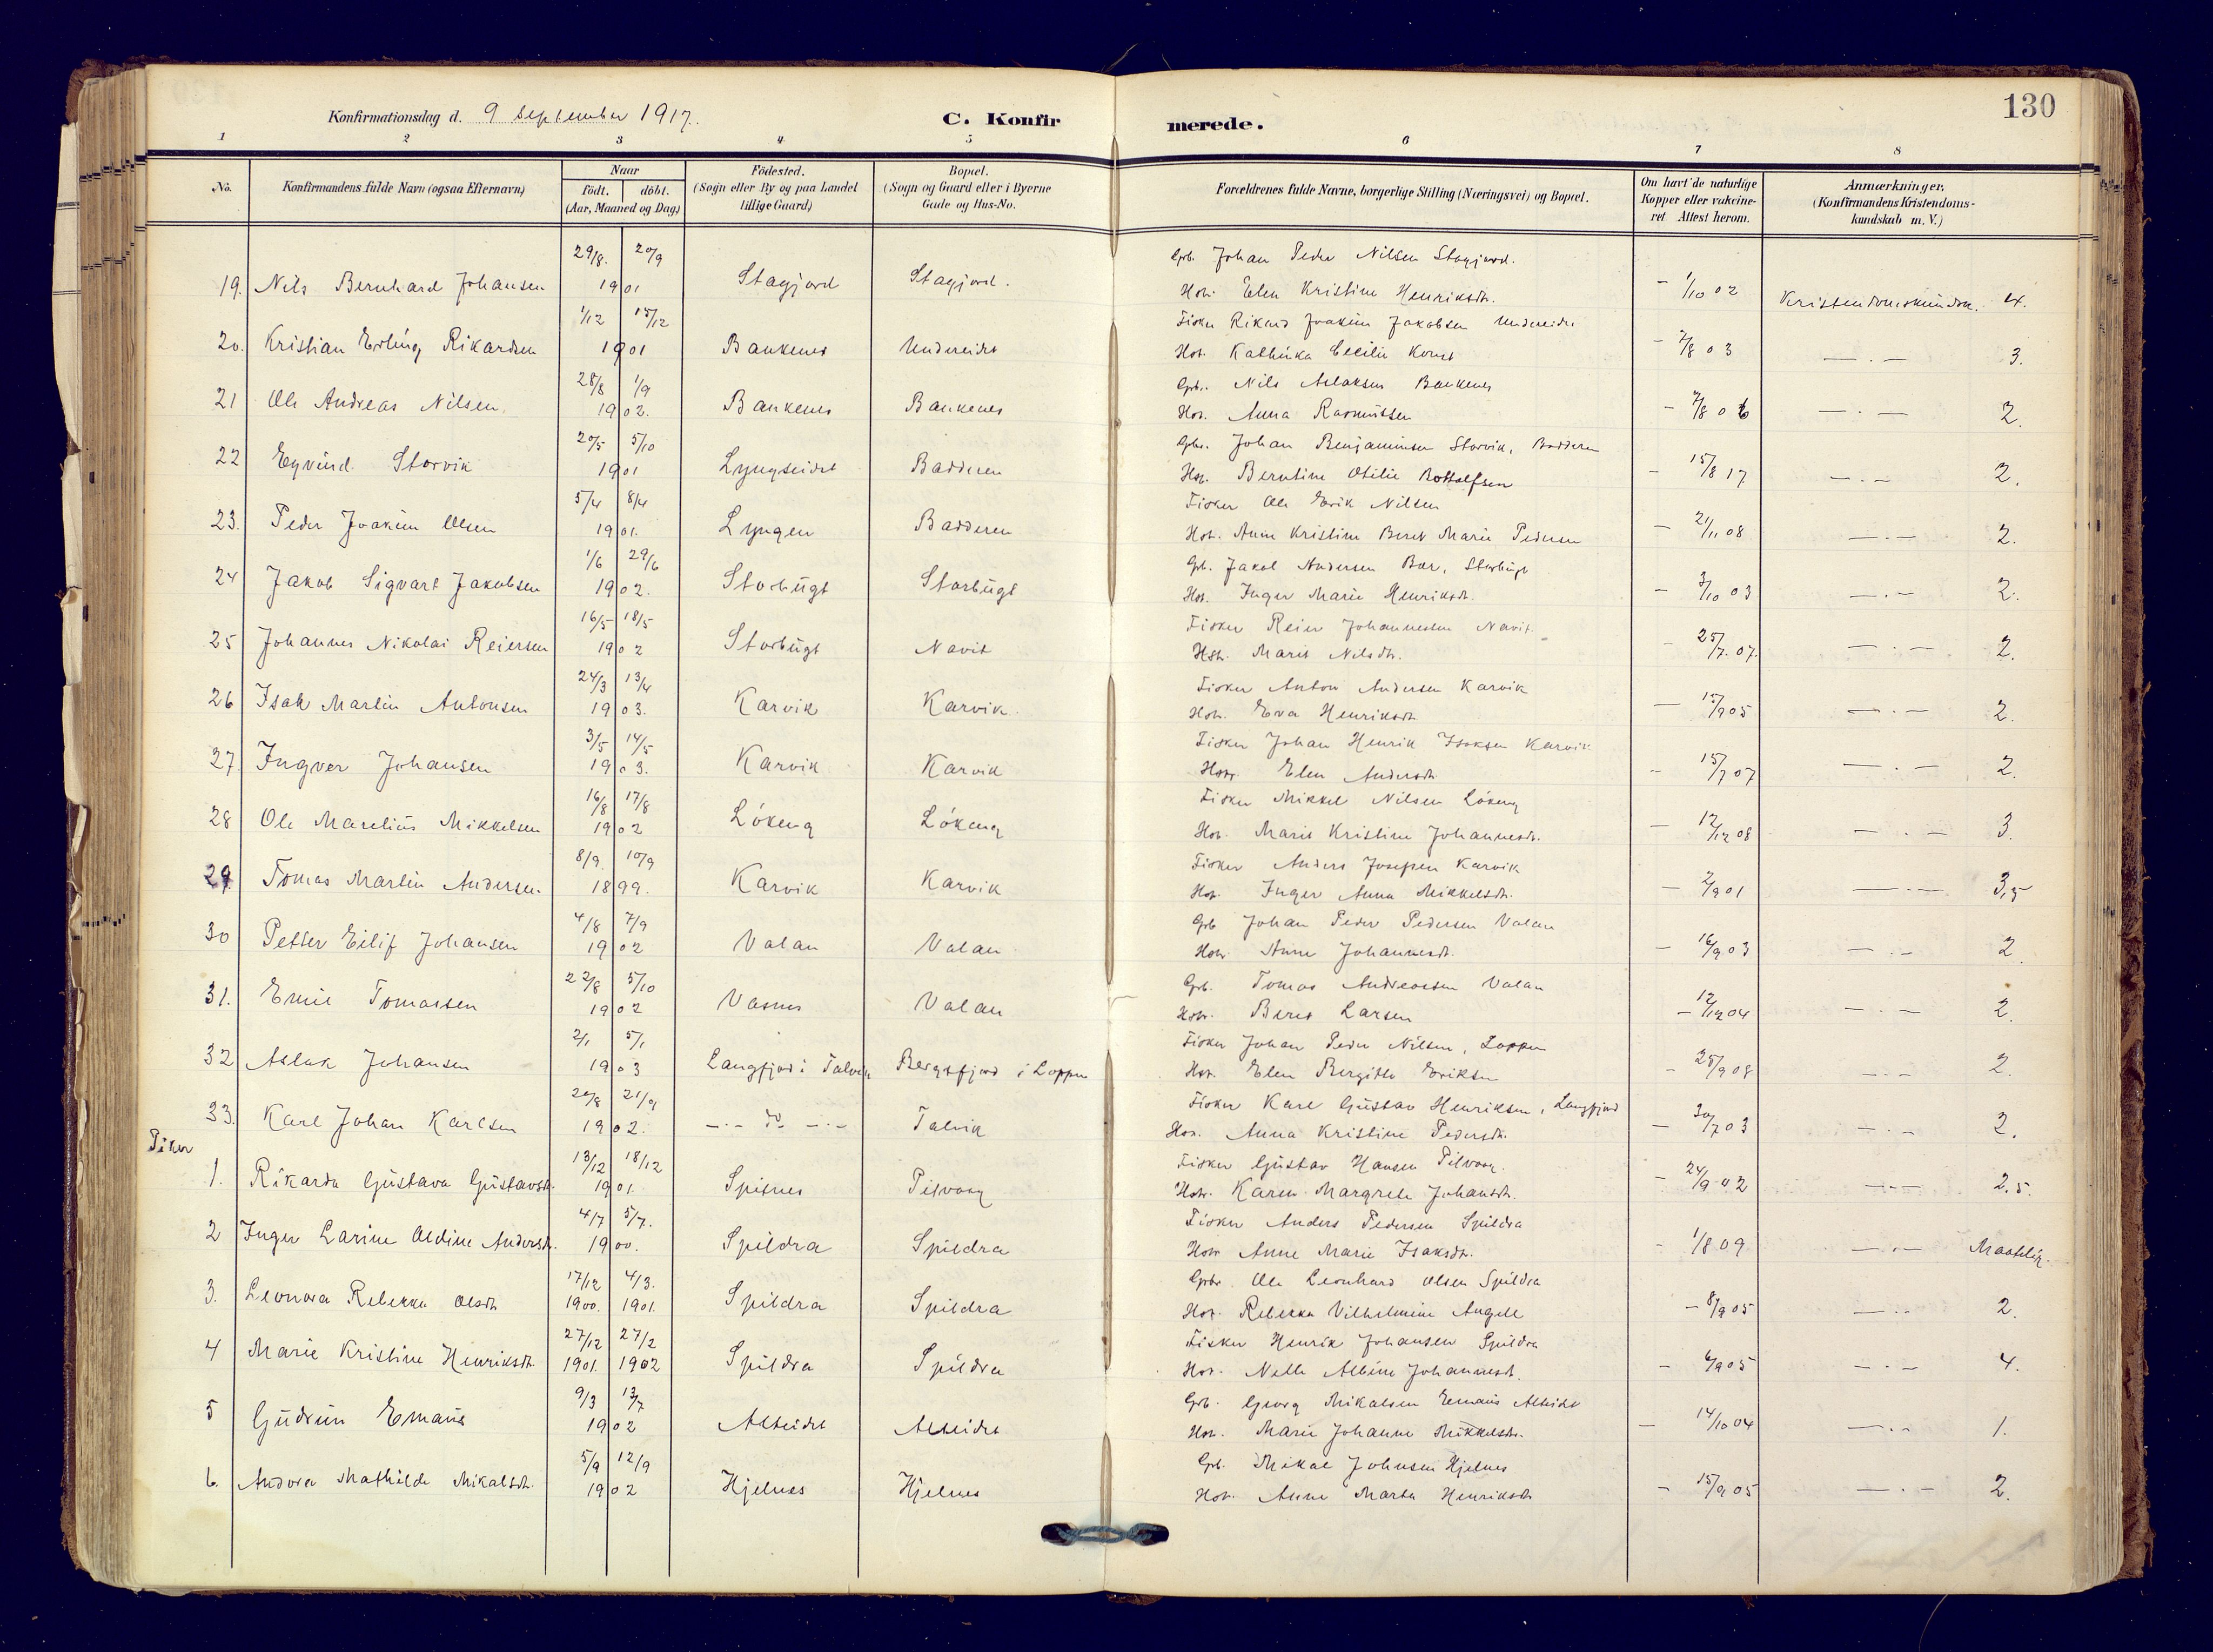 130
Konfirmationsdag d. 9 September 1917.
C. Konfirmerede.
1 2 3 4 5 6 7 8
No.
Konfirmandens fulde Navn (ogsaa Efternavn)
Naar
födt. döbt.
(Aar, Maaned og Dag)
Födested.
(Sogn eller By og paa Landet
tillige Gaard)
Bopæl.
(Sogn og Gaard eller i Byerne
Gade og Hus-No.
Forældrenes fulde Navne, borgerlige Stilling (Næringsvei) og Bopæl.
Om havt de naturlige
Kopper eller vakcine-
ret Attest herom.
Anmærkninger,
(Konfirmandens Kristendoms-
kundskab m. V.)
29/8. 20/9 Grb. Johan Peder Nilsen Stagjord.
19. Nils Bernhard Johansen 1901 Stagjord Stagjord. Hstr. Elen Kristine Henriksdtr. - 1/10 02 Kristendomskundsk. 4.
1/12 15/12 Fisker Rikard Joakim Jakobsen Undereidet
20. Kristian Erling Rikardsen 1901 Baukenes Undereidet Hst. Kathinka Cecilie - 7/8 03 — . — 3.
28/8 1/9 Grb. Nils Aslaksen Baukenes
21 Ole Andreas Nilsen. 1902. Baukenes Baukenes Hst. Anna Rasmussen - 7/8 06 — . — 2.
20/5 5/10 Gbr. Johan Benjaminsen Storvik, Badderen
22 Eyvind Storvik 1901 Lyngseidet Badderen Hst. Berntine Otilie - 15/8 17 — . — 2.
5/4 8/4 Fisker Ole Erik Nilsen
23. Peder Joakim Olsen 1901. Lyngen Badderen Hst. Anne Kristine Beret Marie Pedersen - 21/11 08 — . — 2.
1/6 29/6 Gb. Jakob Andersen Bær, Storbugt
24 Jakob Sigvart Jakobsen 1902. Storbugt Storbugt Hst. Inger Marie Henriksdt. - 3/10 03 — . — 2.
16/5 18/5 Fisker Reier Johannessen Navit.
25 Johannes Nikolai Reiersen 1902 Storbugt Navit Hst. Marit Nilsdtr. - 25/7. 07. — . — 2.
24/3 13/4 Fisker Anton Andersen Karvik
26 Isak Martin Antonsen 1903. Karvik Karvik. Hst. Eva Henriksdt. - 15/9 05 — . — 2.
3/5 14/5 Fisker Johan Henrik Isaksen Karvik
27. Ingver Johansen 1903. Karvik Karvik Hst. Elen Andersdt. - 15/7 07 — . — 2.
16/8 17/8 Fisker Mikkel Nilsen Lökeng
28 Ole Marelius Mikkelsen 1902 Lökeng Lökeng Hst. Marit Kristine Johannesdt. - 12/12 08 — . — 3.
8/9. 10/9 Fisker Anders Josefsen Karvik
29 Tomas Martin Andersen. 1899. Karvik Karvik Hst. Inger Anna Mikkelsdt. - 2/9 01 — . — 3,5
4/8 7/9 Grb Johan Peder Pedersen Valan
30 Petter Eilif Johansen 1902 Valan Valan Hst. Anne Johannesdt. - 16/9 03 — . — 2.
22/8 5/10 Grb. Tomas Andreassen Valan
31. Emil Tomassen 1902 Vasnes Valan Hst. Beret Larsen - 12/12 04 — . — 2.
2/1 5/1 Fisker Johan Peder Nilsen, Loppen
32 Aslak Johansen 1903 Langfjord i Talvik Bergsfjord i Loppen Hst. Elen Bergitte Eriksen - 25/9 08 — . — 2.
20/8 21/9 Fisker Karl Gustav Henriksen, Langfjord
33. Karl Johan Karlsen 1902. — . — do — . — Talvik Hst. Anna Kristine Pedersdt. - 30/7 03 — . — 2.
Piker
13/12 18/12 Fisker Gustav Hansen
1. Rikarda Gustava Gustavsdt. 1901. Spisnes Hst. Karen Margrete Johansdt. - 24/9 02 — . — 2,5.
4/7 5/7. Fisker Anders Pedersen Spildra
2 Inger Larine Oldine Andersdt. 1900. Spildra Spildra Hst. Anne Marie Isaksdt. - 1/8 09 — . — Maatelig.
17/12 4/3. Gbr. Ole Leonhard Olsen Spildra
3. Leonora Rebekka Olsdt 1900. 1901. Spildra Spildra Hst. Rebekka Vilhelmine Angell - 8/9 05 — . — 2.
27/12 27/2 Fisker Henrik Johansen Spildra
4 Marie Kristine Henriksdt. 1901. 1902 Spildra Spildra Hst. Nelle Albine Johannesdt. - 6/9 05 — . — 4.
9/3 13/7 Grb. Georg Mikalsen Emaus Alteidet
5 Gudrun Emaus 1902 Alteidet Alteidet Hst. Marie Johanne Mikkelsdt. - 14/10 04 — . — 1.
5/9 12/9 Grb. Mikal Johnsen Hjelnes
6. Andora Mathilde Mikalsdt. 1902 Hjelnes Hjelnes Hst. Anne Marta Henriksdt - 15/9 05 — . — 2.